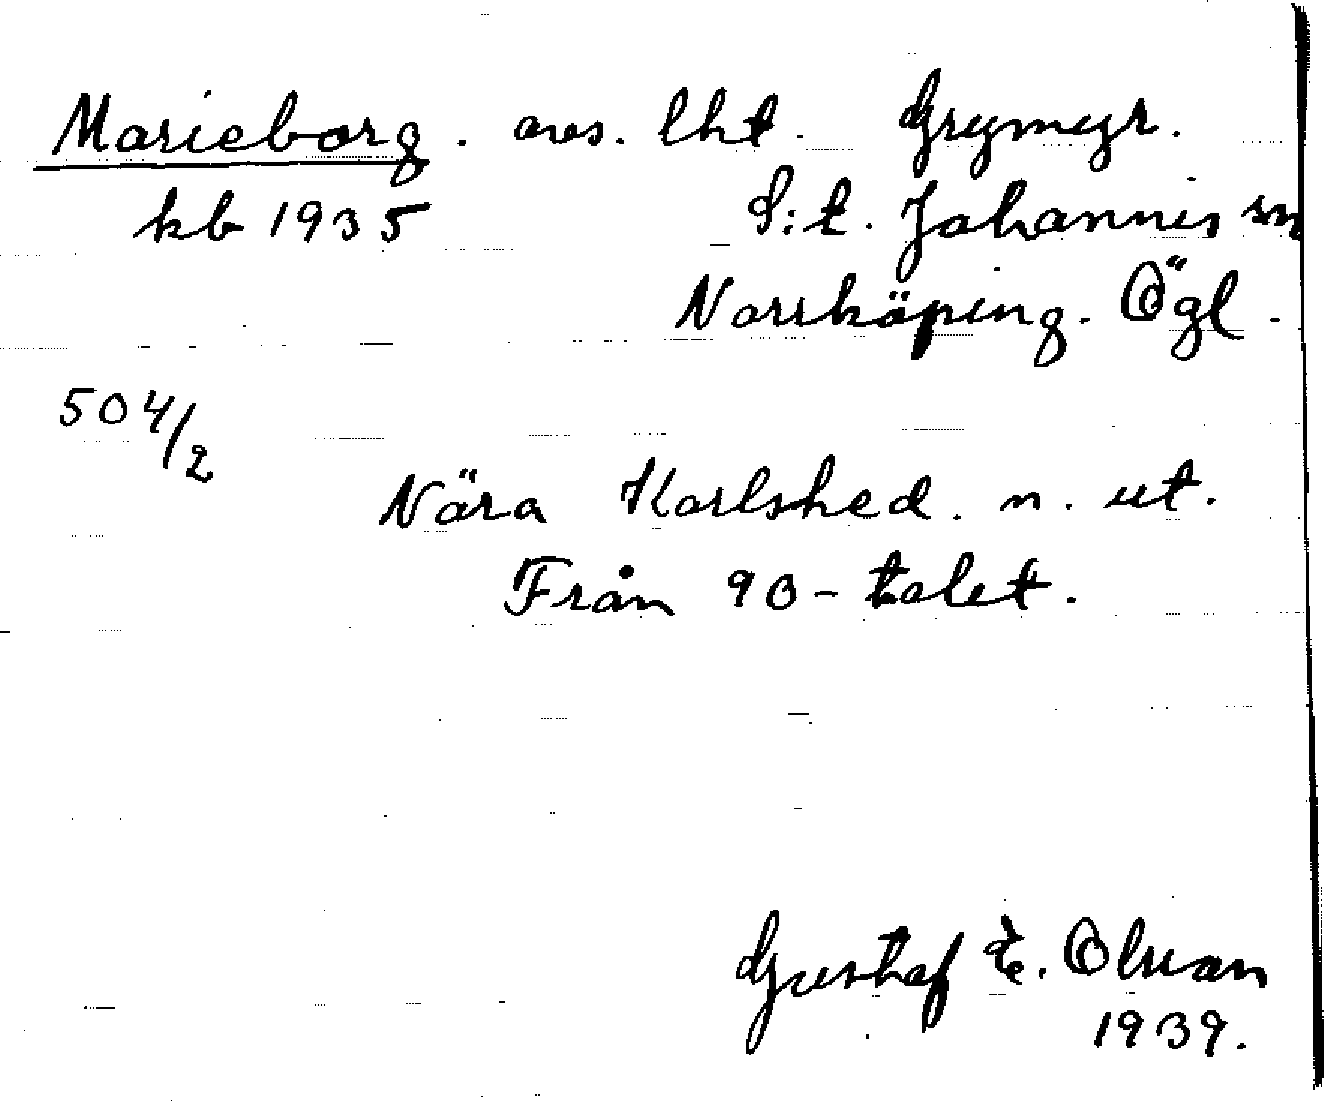 Marieborg. avs. lht. Grymyr.
kb 1935 S:t. Johannes sn
Norrköping. Ögl.
504/2
Nära Karlshed. n. ut.
Från 90-talet.
Gustaf E. Olson
1939.